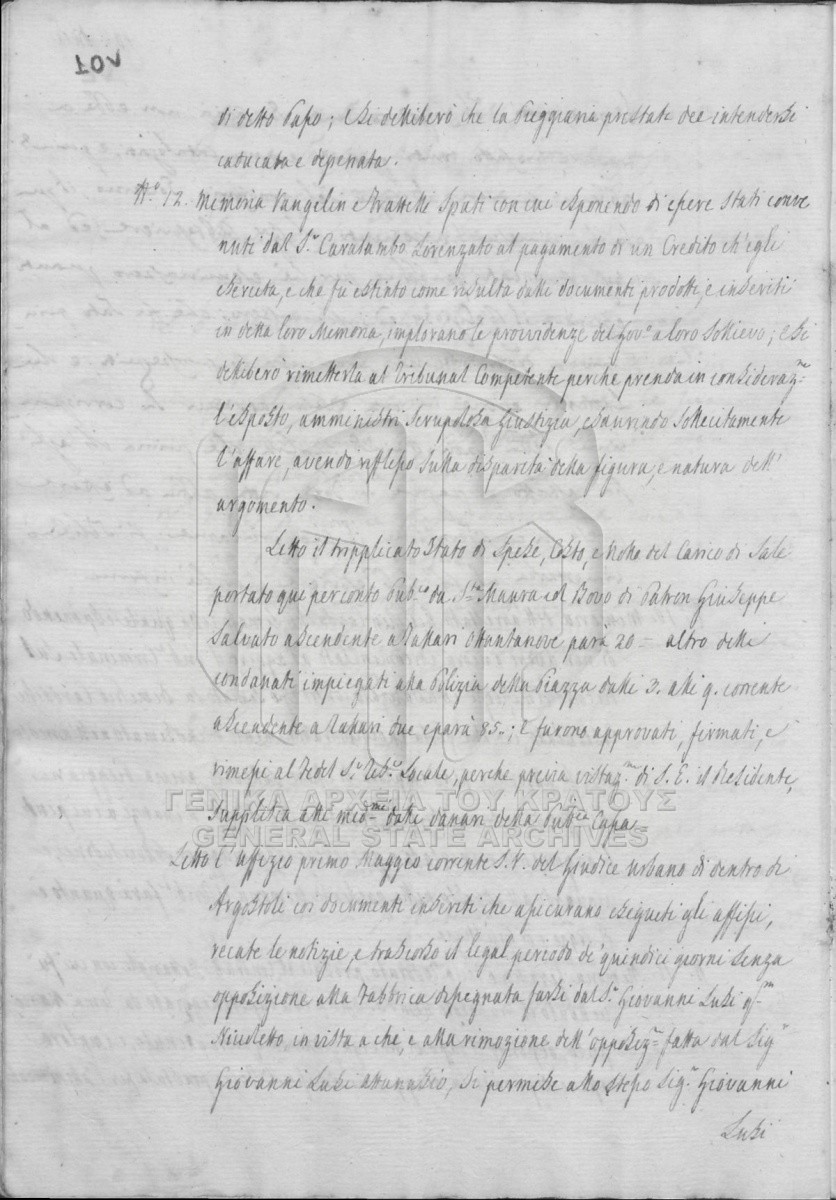 102
di detto Passo; e si deliberò che la Pieggiaria prestata dee intendersi
caducata e depenata.
N.º 12. Memoria Vangelin e Fratelli Spati con cui esponendo di essere stati conve
nuti dal S.r Caralambo Lorenzato al pagamento di un Credito ch'egli
esercita, e che fù estinto come risulta dalli documenti prodotti, e inseriti
in detta loro Memoria, implorano le providenze del Gov.º a loro sollievo; e si
deliberò rimetterla al Tribunal Competente perche prenda in consideraz.ne
l'esposto, amministri scrupolosa Giustizia, esaurindo sollecitamente
l'affare, avendo riflesso sulla disparità della figura, e natura dell'
argomento.
Letto il tripplicato Stato di Spese, Costo, e Nollo del Carico di Sale
portato qui per conto Pub.co da S.ta Maura col Bovo di Patron Giuseppe
Salvato ascendente a Tallari ottantanove parà 20 = altro delli
condanati impiegati alla Polizia della Piazza dalli 3. alli 9. corrente
ascendente a Tallari due e parà 85.; E furono approvati, firmati, e
rimessi al S.r Locale, perche previa vistaz.ne di S. E. il Residente,
supplisca alli med.mi dalli danari della Pub.ca Cassa.
Letto l'uffizio primo Maggio corrente S. V. del Giudice urbano di dentro di
Argostoli coi documenti inseriti che assicurano eseguiti gli affissi,
recate le notizie, e trascorso il legal periodo de' quindici giorni senza
opposizione alla Fabbrica dissegnata farsi dal S.r Giovanni Lusi q.m
Nicoletto in vista a che, e alla rimozione dell'opposiz.ne fatta dal Sig.r
Giovanni Lusi Attanasio, si permise allo stesso Sig.r Giovanni
Lusi
ΓΕΝΙΚΑ ΑΡΧΕΙΑ ΤΟΥ ΚΡΑΤΟΥΣ
GENERAL STATE ARCHIVES